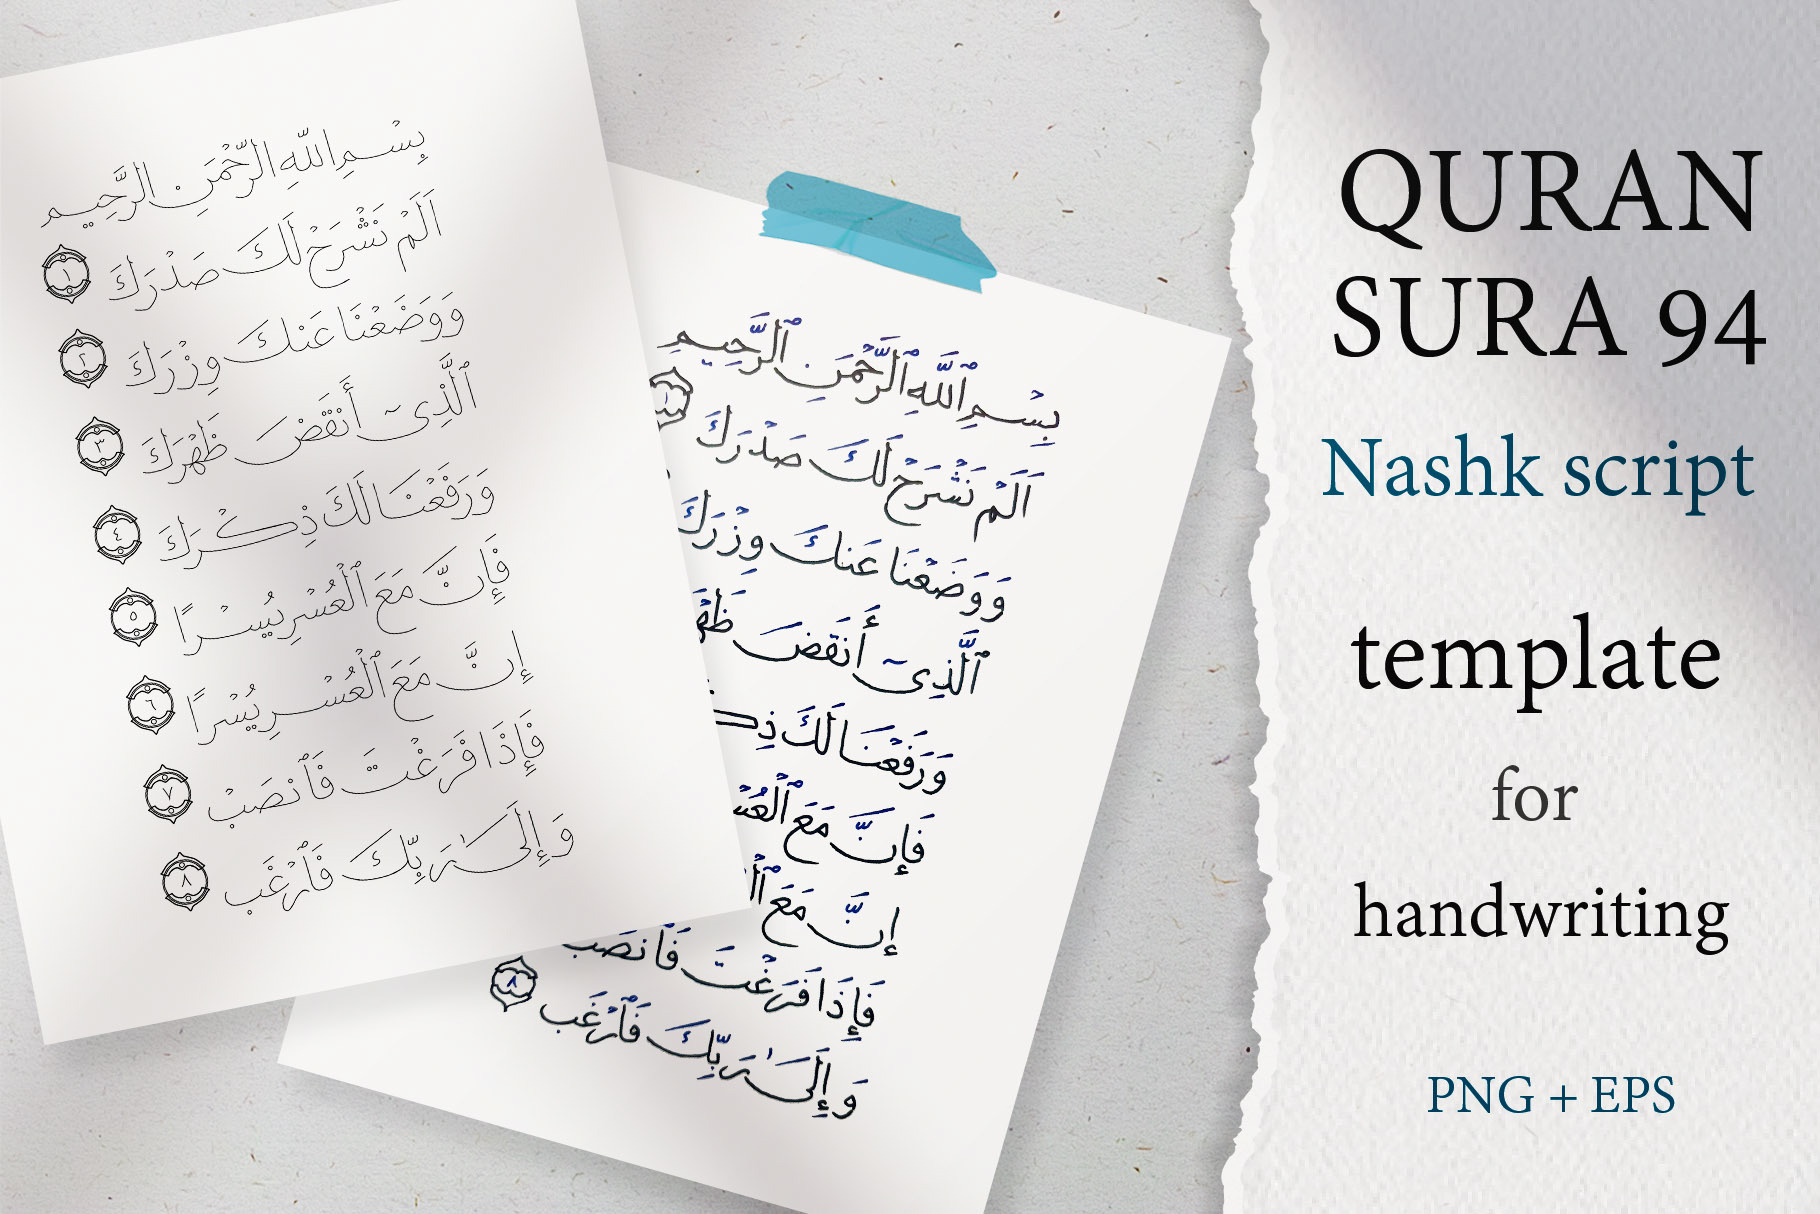 بِسْمِ اللّٰهِ الرَّحْمَنِ الرَّحِيمِ
اَلَمْ نَشْرَحْ لَكَ صَدْرَكَ ١
وَوَضَعْنَا عَنكَ وِزْرَكَ ٢
ٱلَّذِىٓ أَنقَضَ ظَهْرَكَ ٣
وَرَفَعْنَا لَكَ ذِكْرَكَ ٤
فَإِنَّ مَعَ ٱلْعُسْرِ يُسْرًا ٥
إِنَّ مَعَ ٱلْعُسْرِ يُسْرًا ٦
فَإِذَا فَرَغْتَ فَٱنصَبْ ٧
وَإِلَىٰ رَبِّكَ فَٱرْغَب ٨
بِسْمِ ٱللَّهِ ٱلرَّحْمَنِ ٱلرَّحِيمِ
اَلَمْ نَشْرَحْ لَكَ صَدْرَكَ ١
وَوَضَعْنَا عَنكَ وِزْرَكَ
ٱلَّذِىٓ أَنقَضَ
وَرَفَعْنَا لَكَ
فَإِنَّ مَعَ
إِنَّ مَعَ
فَإِذَا فَرَغْتَ فَٱنصَبْ
وَإِلَىٰ رَبِّكَ فَٱرْغَب ٨
QURAN
SURA 94
Nashk script
template
for
handwriting
PNG + EPS